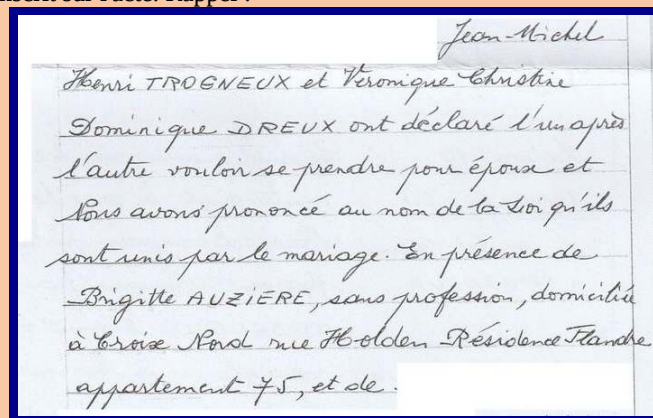 Jean-Michel
Henri TROGNEUX et Véronique Christine
Dominique DREUX ont déclaré l'un après
l'autre vouloir se prendre pour époux et
Nous avons prononcé au nom de la Loi qu'ils
sont unis par le mariage. En présence de
Brigitte AUZIERE, sans profession, domiciliée
à Croix Nord rue Holden Résidence Flandre
appartement 75, et de